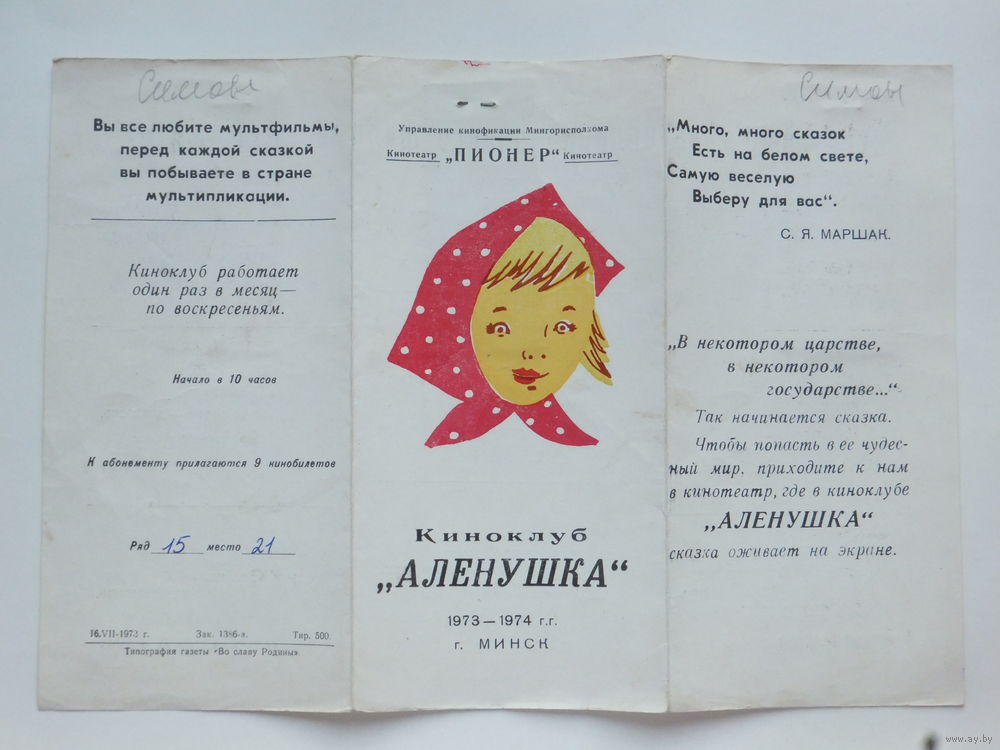 Вы все любите мультфильмы,
перед каждой сказкой
вы побываете в стране
мультипликации.
Киноклуб работает
один раз в месяц—
по воскресеньям.
Начало в 10 часов
К абонементу прилагаются 9 кинобилетов
Ряд 15 место 21
16.VII-1973 г. Зак. 1386-л. Тир. 500.
Типография газеты «Во славу Родины».
Управление кинофикации Мингорисполкома
Кинотеатр „ПИОНЕР“ Кинотеатр
Киноклуб
„АЛЕНУШКА“
1973—1974 г.г.
г. МИНСК
„Много, много сказок
Есть на белом свете,
Самую веселую
Выберу для вас“.
С. Я. МАРШАК.
„В некотором царстве,
в некотором
государстве...“
Так начинается сказка.
Чтобы попасть в ее чудес-
ный мир, приходите к нам
в кинотеатр, где в киноклубе
„АЛЕНУШКА“
сказка оживает на экране.
www.ay.by